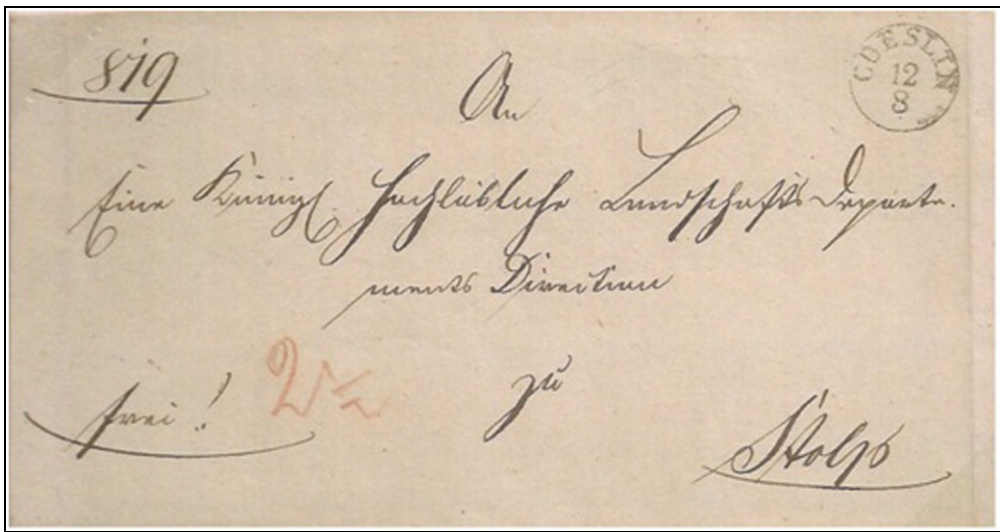 819
COESLIN
12
8
An
Eine Königl Hochlöbliche Landschafts Departe-
ments Direction
zu
frei!
Stolp